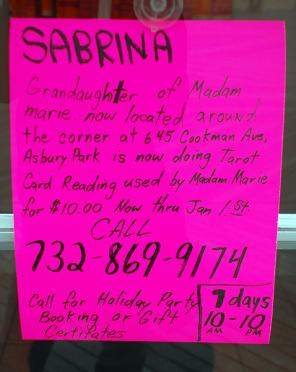 SABRINA
Grandaughter of Madam
marie now located around
the corner at 645 Cookman Ave,
Asbury Park is now doing Tarot
Card Reading used by Madam Marie
for $10.00 Now thru Jan 1st
CALL
732-869-9174
Call for Holiday Party
Booking or Gift
Certifates
7 days
10-10
AM PM